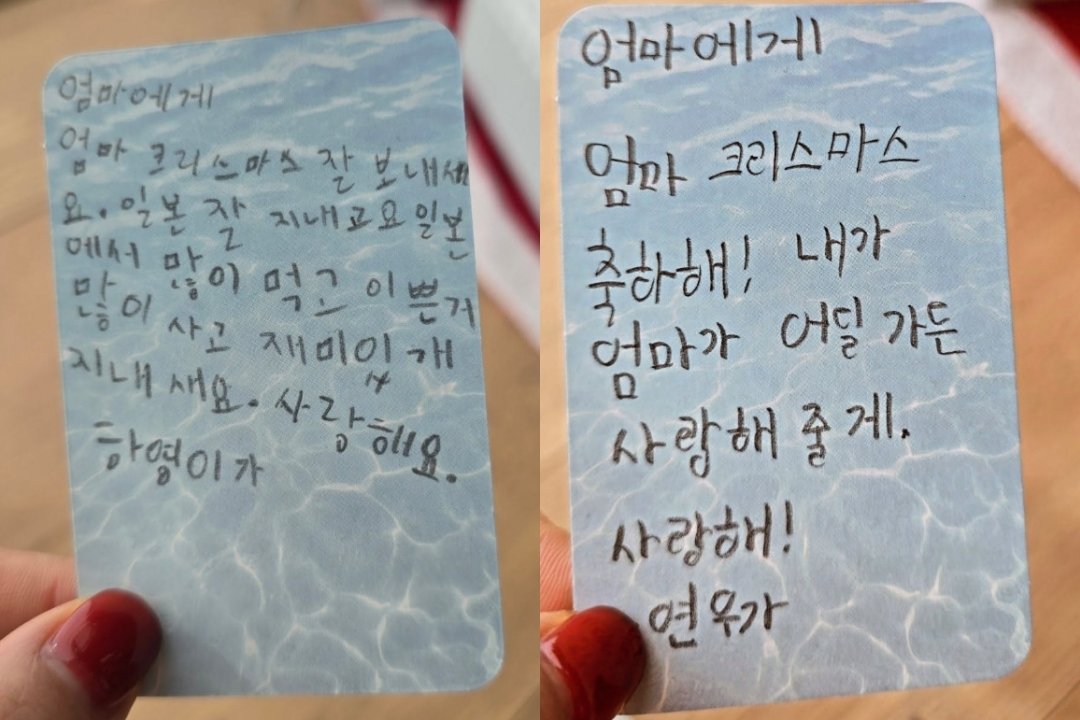 엄마에게
엄마 크리스마스 잘 보내세
요. 일본 잘 지내고요 일본
에서 많이 먹고 이쁜거
많이 사고 재미있개
지내새요. 사랑해요.
하영이가
엄마에게
엄마 크리스마스
축하해! 내가
엄마가 어딜 가든
사랑해 줄게.
사랑해!
연우가